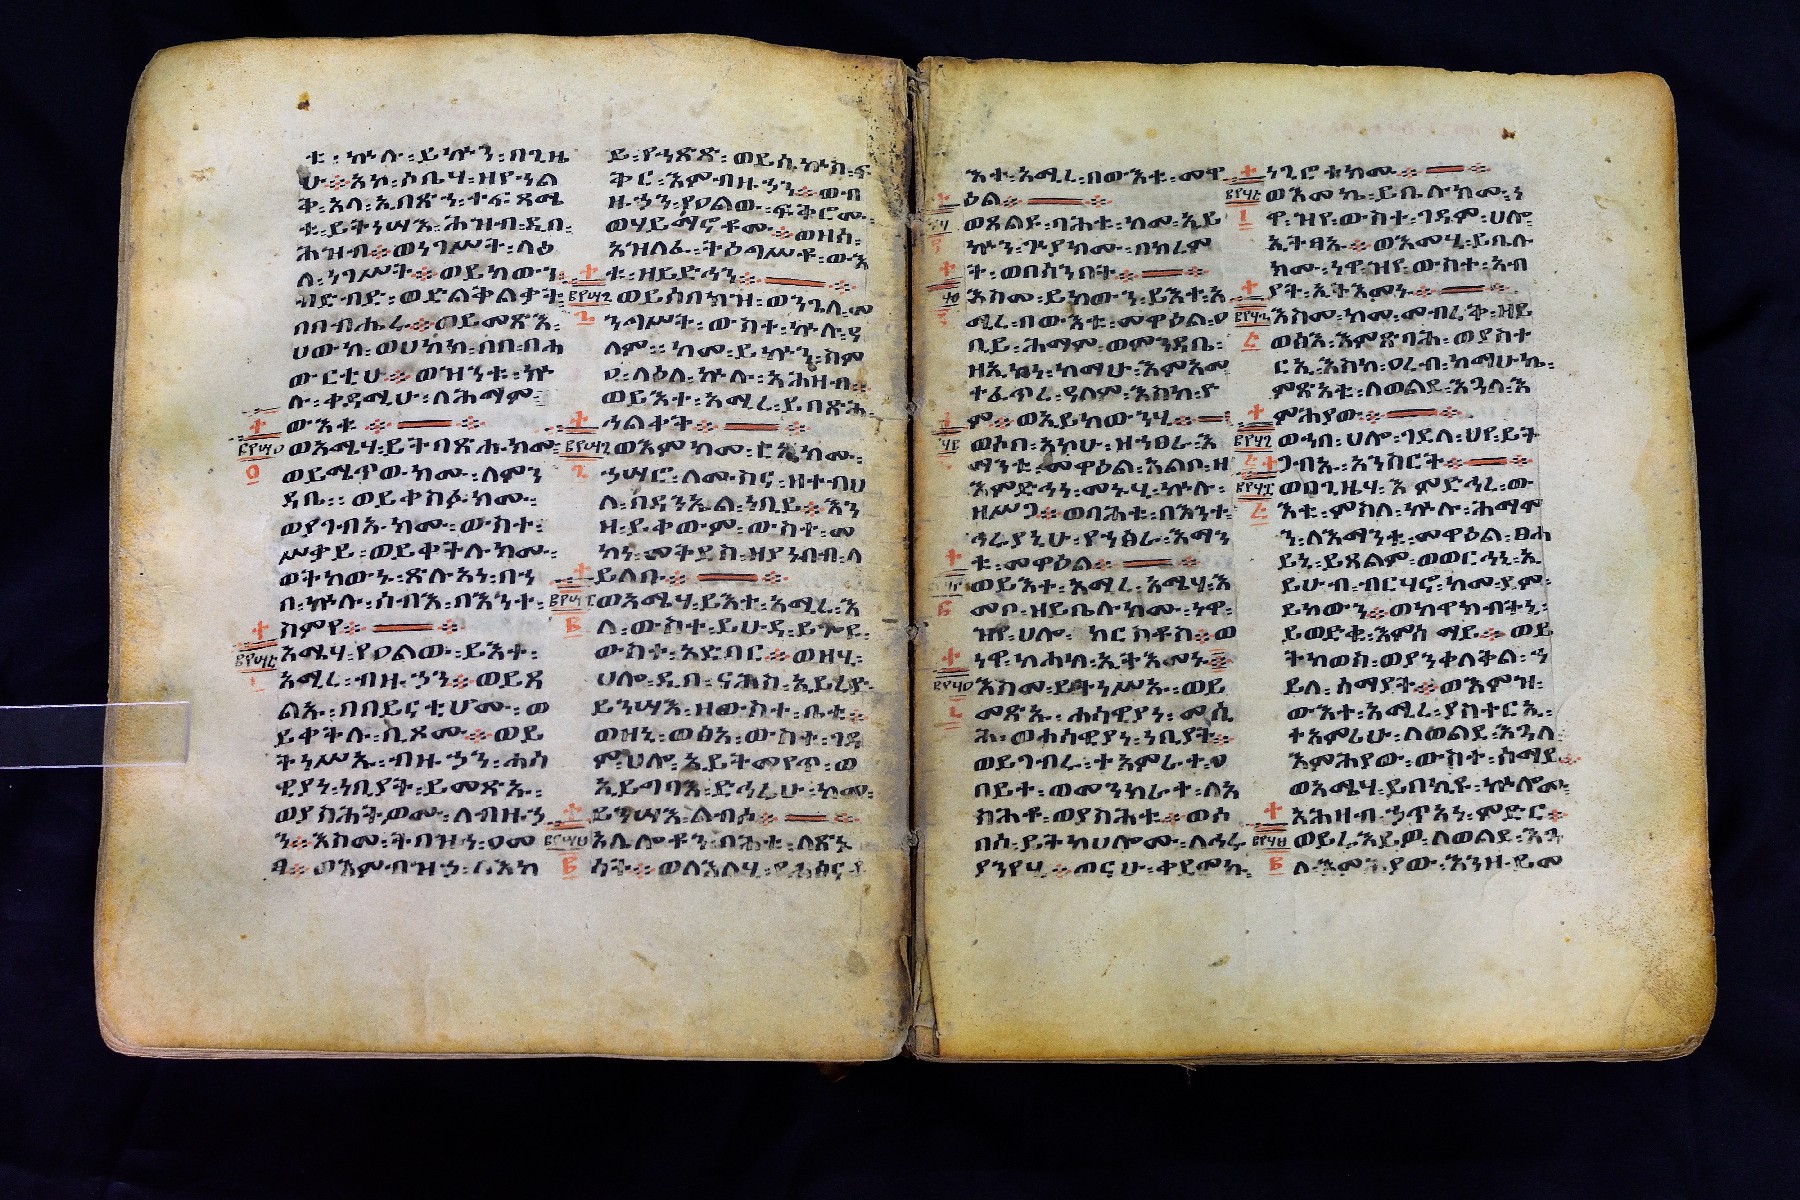 ቱ፡ ኵሉ፡ ይኩን፡ በጊዜ
ሁ፨አኮ፡ ሶቤሃ፡ ዘየኀል
ቅ፡ አላ፡ ኢበጽሐ፡ ተፍጻሜ
ቱ፡ ይትነሣእ፡ ሕዝብ፡ ዲበ፡
ሕዝብ፨ወነገሥት፡ ላዕ
ለ፡ ነገሥት፨ወይከውን፡
ብድብድ፡ ወድልቅልቃት
በበብሔሩ፨ወይመጽእ፡
ሀውክ፡ ወሀከክ፡ በበብሓ
ውርቲሁ፨ወዝንቱ፡ ኵ
ሉ፡ ቀዳሚሁ፡ ለሕማም፡
ውእቱ፨
ወአሜሃ፡ ይትባጽሑክሙ፡
ወይሜጥውክሙ፡ ለምን
ዳቤ፡፡ ወይቀስፉክሙ፡
ወያገብኡክሙ፡ ውስተ፡
ሥቃይ፡ ወይቀትሉክሙ፡
ወትከውኑ፡ ጽሉአነ፡ በኀ
በ፡ ኵሉ፡ ሰብእ፡ በእንተ፡
ስምየ፨
አሜሃ፡ የዐልው፡ ይእተ፡
አሚረ፡ ብዙኃን፨ወይጸ
ልኡ፡ በበይናቲሆሙ፡ ወ
ይቀትሉ፡ ቢጾሙ፨ወይ
ትነሥኡ፡ ብዙኃን፡ ሐሰ
ዊያነ፡ ነቢያት፡ ይመጽኡ፡
ወያስሕትዎሙ፡ ለብዙኃ
ን፨እስመ፡ ትበዝኅ፡ ዐመ
ፃ፨ወእምብዝኃ፡ ሪእኮ
ይ፡ የኀጽጽ፡ ወይሴኵስ፡ ፍ
ቅር፡ እምብዙኃን፨ወብ
ዙኃን፡ የዐልወ፡ ፍቅሮሙ፡
ወሃይማኖቶሙ፨ወዘሰ፡
አዝለፈ፡ ትዕግሥቶ፡ ውእ
ቱ፡ ዘይድኅን፨
ወይሰበክ፡ ዝ፡ ወንጌለ፡ መ
ንግሥት፡ ውስተ፡ ኵሉ፡ ዓ
ለም፡፡ ከመ፡ ይኩን፡ ስም
ዐ፡ ላዕለ፡ ኵሉ፡ አሕዛብ፡
ወይእተ፡ አሚረ፡ ይበጽሕ፡
ኅልቀት፨
ወእምከመ፡ ርኢክሙ፡
ኃሣሮ፡ ለሙስና፡ ዘተብህ
ለ፡ በዳንኤል፡ ነቢይ፨እን
ዘ፡ ይቀውም፡ ውስተ፡ መ
ካነ፡ መትድስ፡ ዘያነብብ፡ ለ
ይለቡ፨
ወአሜሃ፡ ይእተ፡ አሚረ፡ እ
ለ፡ ውስተ፡ ይሁዳ፡ ይጕየ፡
ውስተ፡ አድባር፨ወዘሂ፡
ሀሎ፡ ዲበ፡ ናሕስ፡ ኢይረድ፡
ይንሣእ፡ ዘውስተ፡ ቤቱ፡
ወዘኒ፡ ወፅአ፡ ውስተ፡ ገዳ
ም፡ ሀሎ፡ ኢይትመየጥ፡ ወ
ኢይግባእ፡ ድኅሬሁ፡ ከመ፡
ይንሣእ፡ ልብሶ፨
አሌሎቶን፡ ባሕቱ፡ ለጽኑ
ሳት፨ወለእለሂ፡ የሐፅና፡
እተ፡ አሚረ፡ በውእቱ፡ መዋ
ዕል፨
ወጸልዩ፡ ባሕቱ፡ ከመ፡ ኢይ
ኩን፡ ጕያክሙ፡ በክረም
ት፡ ወበሰንበት፨
እስመ፡ ይከውን፡ ይእተ፡ አ
ሚረ፡ በውእቱ፡ መዋዕል፡ ዐ
ቢይ፡ ሕማም፡ ወምንዳቤ፡
ዘኢኮነ፡ ከማሁ፡ እምአመ
ተፈጥረ፡ ዓለም፡ እስከ፡ ዮ
ም፨ወኢይከውንሂ፨
ወሶበ፡ አኮሁ፡ ዘኀፀራ፡ እ
ማንቱ፡ መዋዕል፡ አልቦ፡ ዘ
እምድኅነ፡ መኑሂ፡ ኵሉ፡
ዘሥጋ፨ወባሕቱ፡ በእንተ፡
ኅሩያኒሁ፡ የኀፅራ፡ እማን
ቱ፡ መዋዕል፨
ወይእተ፡ አሚረ፡ አሜሃ፡ እ
መቦ፡ ዘይቤሉክሙ፡ ነዋ፡
ዝየ፡ ሀሎ፡ ክርስቶስ፨ወ
ነዋ፡ ከሐከ፡ ኢትእመኑ፨
እስመ፡ ይትነሥኡ፡ ወይ
መጽኡ፡ ሐሳዊያነ፡ መሲ
ሕ፡ ወሐሳዊያነ፡ ነቢያት፡
ወይገብሩ፡ ተአምራተ፡ ዐ
በይተ፡ ወመንክራተ፡ ለአ
ስሕቶ፡ ወያስሕቱ፨ወሶ
በሰ፡ ይትከሀሎሙ፡ ለኅሩ
ያንየሂ፨ወናሁ፡ ቀደመኩ
ነጊሮቱክሙ፨
ወእመኬ፡ ይቤሉክሙ፡ ነ
ዋ፡ ዝየ፡ ውስተ፡ ገዳም፡ ሀሎ
ኢትፃኡ፨ወእመሂ፡ ይቤሉ
ክሙ፡ ነዋ፡ ዝየ፡ ውስተ፡ አብ
ያት፡ ኢትእመኑ፨
እስመ፡ ከመ፡ መብረቅ፡ ዘይ
ወፅእ፡ እምጽባሕ፡ ወያስተ
ርኢ፡ እስከ፡ ዐረብ፡ ከማሁኬ፡
ምጽአቱ፡ ለወልደ፡ እጓለ፡ እ
ምሕያው፨
ወኀበ፡ ሀሎ፡ ገደላ፡ ህየ፡ ይት
ጋብኡ፡ አንስርት፨
ወበጊዜሃ፡ እምድኅረ፡ ው
እቱ፡ ምስለ፡ ኵሉ፡ ሕማም
ን፡ ለእማንቱ፡ መዋዕል፡ ፀሐ
ይኒ፡ ይጸልም፡ ወወርኅኒ፡ ኢ
ይሁብ፡ ብርሃኖ፡ ከመ፡ ደም፡
ይከውን፨ወከዋክብትኒ፡
ይወድቁ፡ እምሰማይ፨ወይ
ትከወስ፡ ወያንቀለቅል፡ ኀ
ይለ፡ ሰማያት፨ወእምዝ፡
ውእተ፡ አሚረ፡ ያስተርኢ፡
ተአምሪሁ፡ ለወልደ፡ እጓለ፡
እምሕያው፡ ውስተ፡ ሰማይ፨
ወአሜሃ፡ ይበክዩ፡ ኵሎሙ፡
አሕዛብ፡ ኃጥአነ፡ ምድር፨
ወይሬእይዎ፡ ለወልደ፡ እጓ
ለ፡ እመሕያው፡ እንዘ፡ ይመ